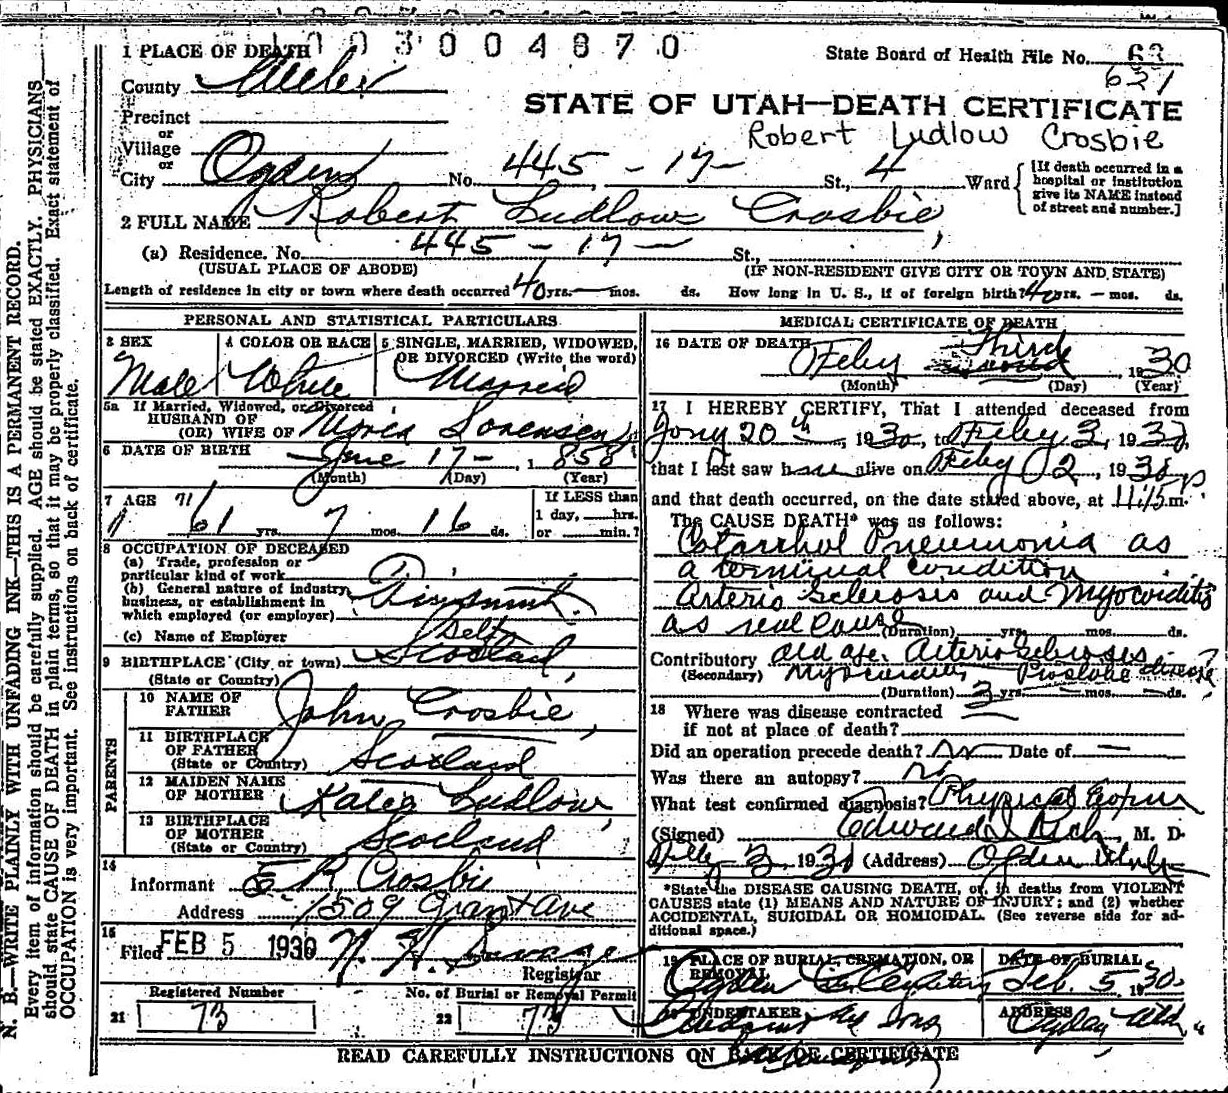 1003004870
1 PLACE OF DEATH
State Board of Health File No. 63
621
County Weber
STATE OF UTAH—DEATH CERTIFICATE
Precinct
or
Robert Ludlow Crosbie
Village
or
City Ogden No. 445 - 17 - St., 4 Ward
[If death occurred in a
hospital or institution
give its NAME instead
of street and number.]
2 FULL NAME Robert Ludlow Crosbie,
(a) Residence. No. 445 - 17 - St.,
(USUAL PLACE OF ABODE) (IF NON-RESIDENT GIVE CITY OR TOWN AND STATE)
Length of residence in city or town where death occurred 40 yrs. — mos. ds. How long in U. S., if of foreign birth? 40 yrs. — mos. ds.
PERSONAL AND STATISTICAL PARTICULARS
3 SEX
Male
4 COLOR OR RACE
White
5 SINGLE, MARRIED, WIDOWED,
OR DIVORCED (Write the word)
Married
5a If Married, Widowed, or Divorced
HUSBAND OF
(OR) WIFE OF Sorensen
6 DATE OF BIRTH June 17 - , 1858
(Month) (Day) (Year)
7 AGE 71
61 yrs. 7 mos. 16 ds.
If LESS than
1 day, hrs.
or min.?
8 OCCUPATION OF DECEASED
(a) Trade, profession or
particular kind of work
(b) General nature of industry
business, or establishment in
which employed (or employer)
(c) Name of Employer Self
9 BIRTHPLACE (City or town) Scotland,
(State or Country)
PARENTS
10 NAME OF
FATHER John Crosbie,
11 BIRTHPLACE
OF FATHER
(State or Country) Scotland
12 MAIDEN NAME
OF MOTHER Katie Ludlow,
13 BIRTHPLACE
OF MOTHER
(State or Country) Scotland
14
Informant E R Crosbie
Address 1509 Grant Ave
15
Filed FEB 5 1930
Registrar
Registered Number
21 73
No. of Burial or Removal Permit
22 73
MEDICAL CERTIFICATE OF DEATH
16 DATE OF DEATH
Feby Third 1930
(Month) (Day) (Year)
17 I HEREBY CERTIFY, That I attended deceased from
Jany 20th, 1930, to Feby 3, 1930,
that I last saw h alive on Feby 2, 1930
and that death occurred, on the date stated above, at 11:15 P m.
The CAUSE DEATH* was as follows:
Catarrhal Pneumonia as
a terminal condition
Arterio Sclerosis and Myocarditis
as real cause
(Duration) yrs. mos. ds.
Contributory old age. Arterio Sclerosis
(Secondary) Myocarditis Prostate disease
(Duration) 3 yrs. — mos. — ds.
18 Where was disease contracted
if not at place of death? —
Did an operation precede death? no Date of —
Was there an autopsy? no
What test confirmed diagnosis? Physical Exam
(Signed) Edward I Rich, M. D.
Feby 3 1930 (Address) Ogden Utah
*State the DISEASE CAUSING DEATH, or, in deaths from VIOLENT
CAUSES state (1) MEANS AND NATURE OF INJURY; and (2) whether
ACCIDENTAL, SUICIDAL OR HOMICIDAL. (See reverse side for ad-
ditional space.)
19 PLACE OF BURIAL, CREMATION, OR
REMOVAL
Ogden City Cemetery
DATE OF BURIAL
Feb. 5, 1930.
20 UNDERTAKER
& Sons
ADDRESS
Ogden Utah
READ CAREFULLY INSTRUCTIONS ON BACK OF CERTIFICATE
N. B.—WRITE PLAINLY WITH UNFADING INK—THIS IS A PERMANENT RECORD.
Every item of information should be carefully supplied. AGE should be stated EXACTLY. PHYSICIANS
should state CAUSE OF DEATH in plain terms, so that it may be properly classified. Exact statement of
OCCUPATION is very important. See instructions on back of certificate.